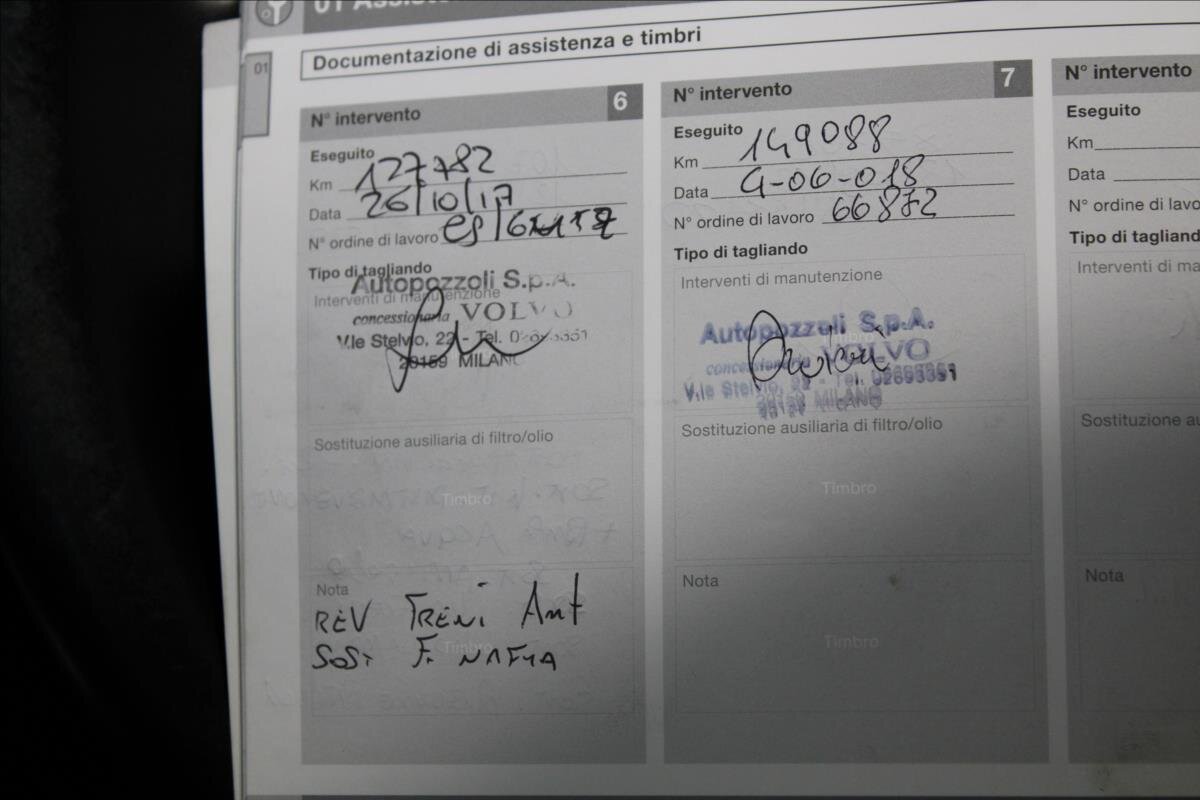 01
Documentazione di assistenza e timbri
N° intervento 6
Eseguito
Km 127782
Data 26/10/17
N° ordine di lavoro
Tipo di tagliando
Interventi di manutenzione
Autopozzoli S.p.A.
concessionaria VOLVO
V.le Stelvio, 22 - Tel.
20159 MILANO
Sostituzione ausiliaria di filtro/olio
Timbro
Nota
REV FRENI Ant
SOST F. NAFTA
Timbro
N° intervento 7
Eseguito
Km 149088
Data 4-06-018
N° ordine di lavoro 66872
Tipo di tagliando
Interventi di manutenzione
Timbro
Autopozzoli S.p.A.
concessionaria VOLVO
V.le Stelvio, 22 - Tel. 02693351
20159 MILANO
Sostituzione ausiliaria di filtro/olio
Timbro
Nota
Timbro
N° intervento
Eseguito
Km
Data
N° ordine di lavo
Tipo di tagliand
Interventi di ma
Sostituzione au
Nota